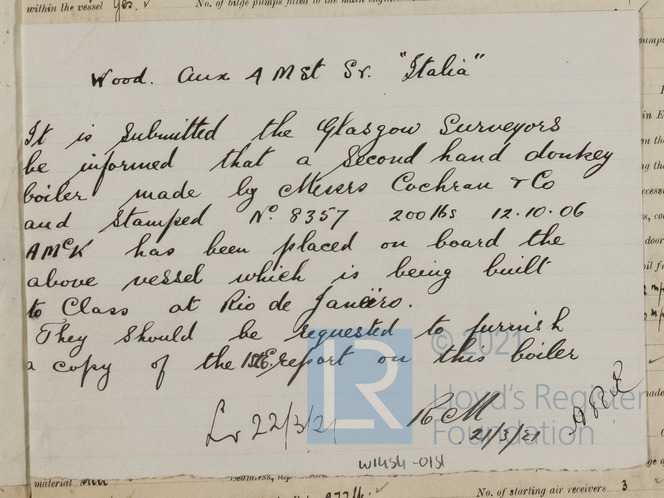 within the vessel Yes. No. of bilge pumps fitted to the main engine
Wood. Aux A M St Sr. "Italia"
It is submitted the Glasgow Surveyors
be informed that a second hand donkey
boiler made by Messrs Cochran & Co
and stamped No. 8357 200 lbs 12.10.06
AMcK has been placed on board the
above vessel which is being built
to Class at Rio de Janeiro.
They should be requested to furnish
a copy of the 1st E. report on this boiler
© 2021
LR
Lloyd's Register
Foundation
Lr 22/3/21
RCM
21/3/21
W1454-0151
material
No. of starting air receivers 3